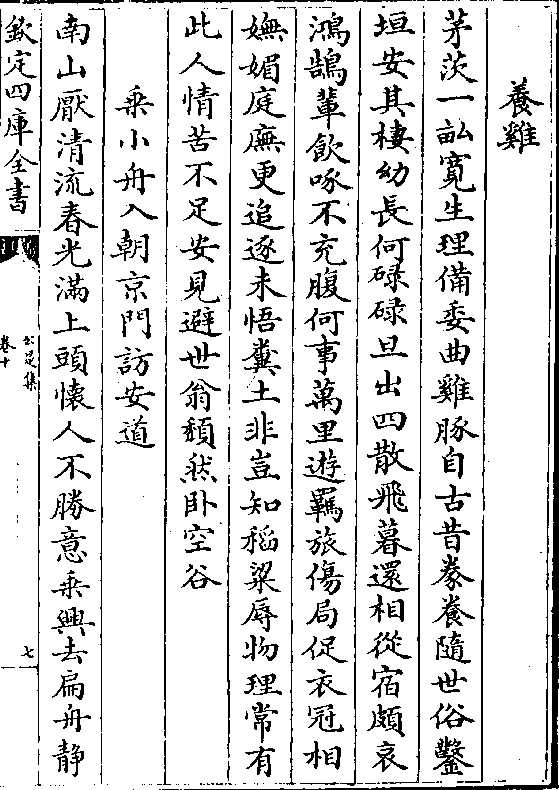 養雞
茅茨一畝寛生理備委曲雞豚自古昔豢養隨世俗鑿
垣安其棲幼長何碌碌旦出四散飛暮還相從宿頗哀
鴻鵠輩飲啄不充腹何事萬里遊羈旅傷局促衣冠相
嫵媚庭廡更追逐未悟糞土非豈知稻粱辱物理常有
此人情苦不足安見避世翁頽然卧空谷
乗小舟入朝京門訪安道
南山厭清流春光滿上頭懷人不勝意乗興去扁舟静
欽定四庫全書
公是集
卷十
七